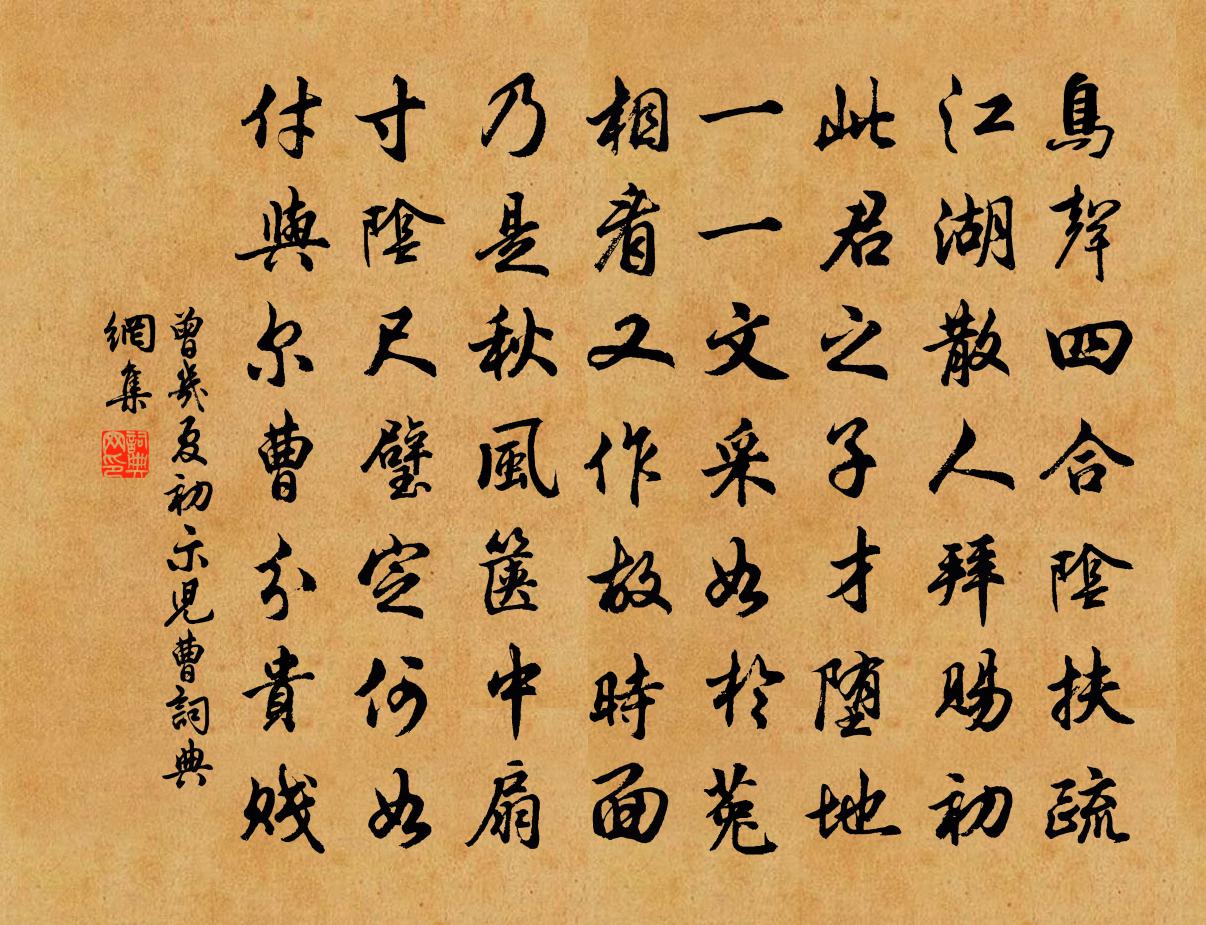 鳥聲四合陰扶疏
江湖散人拜賜初
此君之子才墮地
一一文采如於菟
相看又作故時面
乃是秋風篋中扇
寸陰尺璧定何如
付與尔曹分貴賤
曾幾夏初示兒曹詞典
網集
詞典
网印